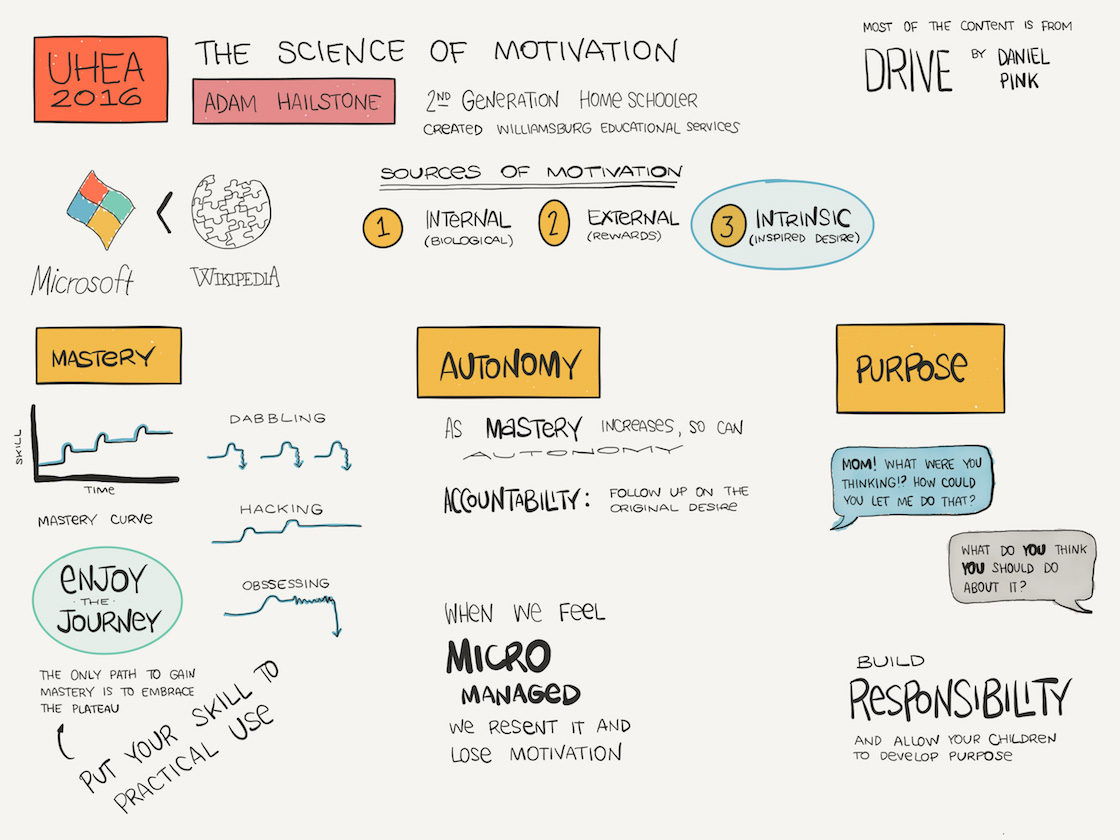 UHEA
2016
THE SCIENCE OF MOTIVATION
ADAM HAILSTONE
2ND GENERATION HOME SCHOOLER
CREATED WILLIAMSBURG EDUCATIONAL SERVICES
MOST OF THE CONTENT IS FROM
DRIVE BY DANIEL
PINK
Microsoft
<
WIKIPEDIA
SOURCES OF MOTIVATION
1 INTERNAL
(BIOLOGICAL)
2 EXTERNAL
(REWARDS)
3 INTRINSIC
(INSPIRED DESIRE)
MASTERY
SKILL
TIME
MASTERY CURVE
DABBLING
HACKING
OBSSESSING
ENJOY
·THE·
JOURNEY
THE ONLY PATH TO GAIN
MASTERY IS TO EMBRACE
THE PLATEAU
PUT YOUR SKILL TO
PRACTICAL USE
AUTONOMY
AS MASTERY INCREASES, SO CAN
AUTONOMY
ACCOUNTABILITY: FOLLOW UP ON THE
ORIGINAL DESIRE
WHEN WE FEEL
MICRO
MANAGED
WE RESENT IT AND
LOSE MOTIVATION
PURPOSE
MOM! WHAT WERE YOU
THINKING!? HOW COULD
YOU LET ME DO THAT?
WHAT DO YOU THINK
YOU SHOULD DO
ABOUT IT?
BUILD
RESPONSIBILITY
AND ALLOW YOUR CHILDREN
TO DEVELOP PURPOSE